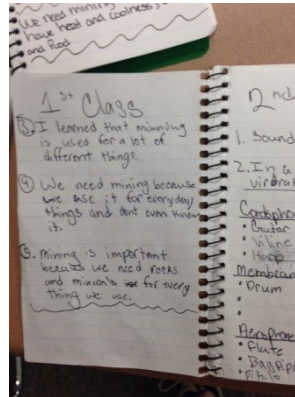 We need mining
have heat and coolness,
and food
1st Class
3. I learned that minning
is used for a lot of
different things.
4. We need mining because
we use it for everyday
things and dont even know
it.
5. Mining is important
because we need rocks
and minirals for every
thing we use.
2nd
1. Sound
2. In a
vibrat
Cordopho
• Guitar
• Viline
• Harp
Membran
• Drum
Aerophone
• Flute
• Bagpipe